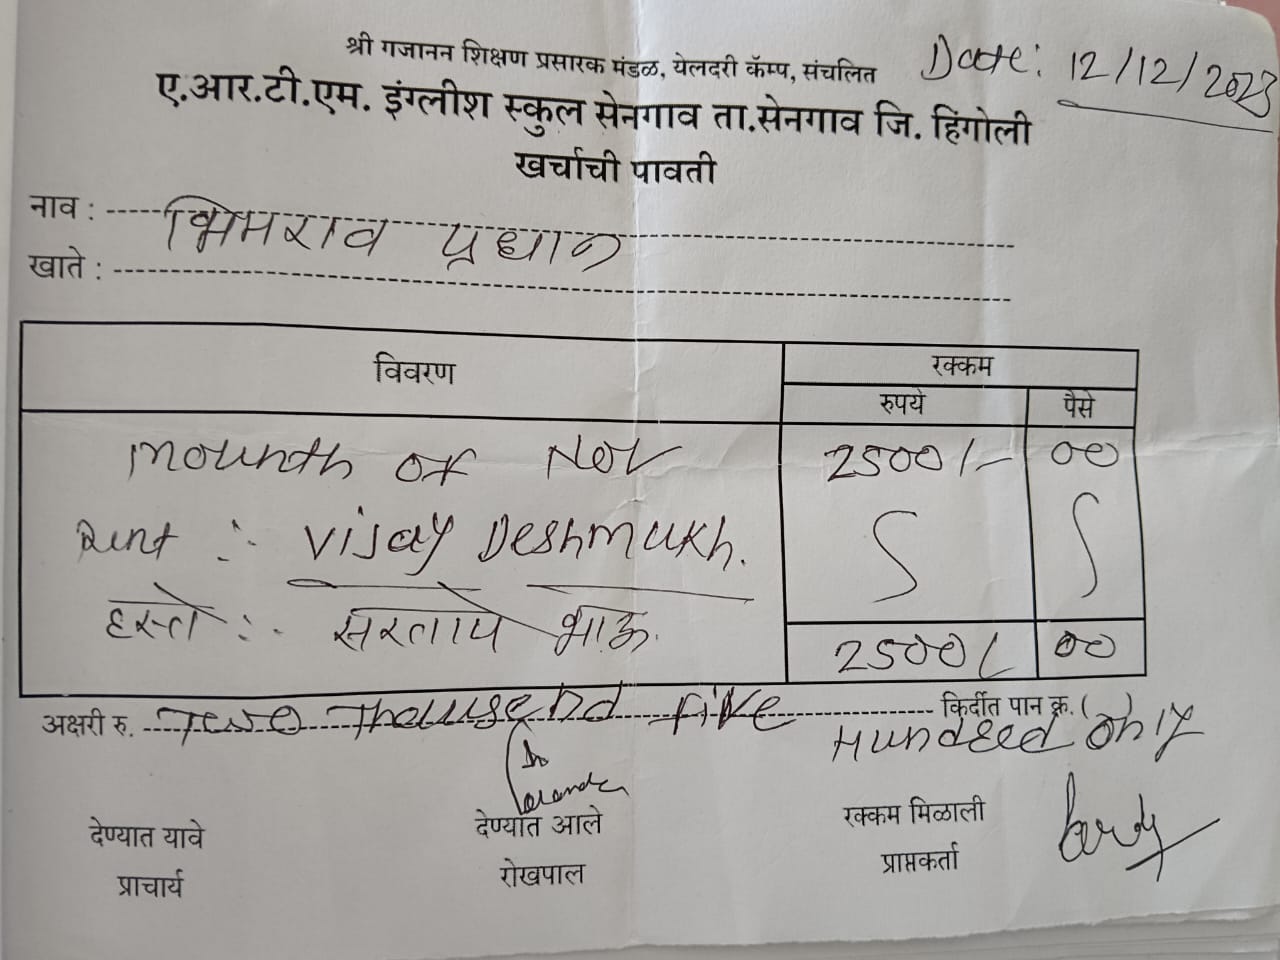 श्री गजानन शिक्षण प्रसारक मंडळ, येलदरी कॅम्प, संचलित
Date: 12/12/2023
ए.आर.टी.एम. इंग्लीश स्कुल सेनगाव ता.सेनगाव जि. हिंगोली
खर्चाची पावती
नाव : भिमराव प्रधान
खाते :
विवरण रक्कम
रुपये पैसे
Mounth of Nov 2500/- 00
Rent :- Vijay Deshmukh.
हस्ते :- सरतापे भाऊ.
2500/ 00
अक्षरी रु. Two Thousend Five किर्दीत पान क्र. ( )
Hundred Only
देण्यात यावे देण्यात आले रक्कम मिळाली
प्राचार्य रोखपाल प्राप्तकर्ता